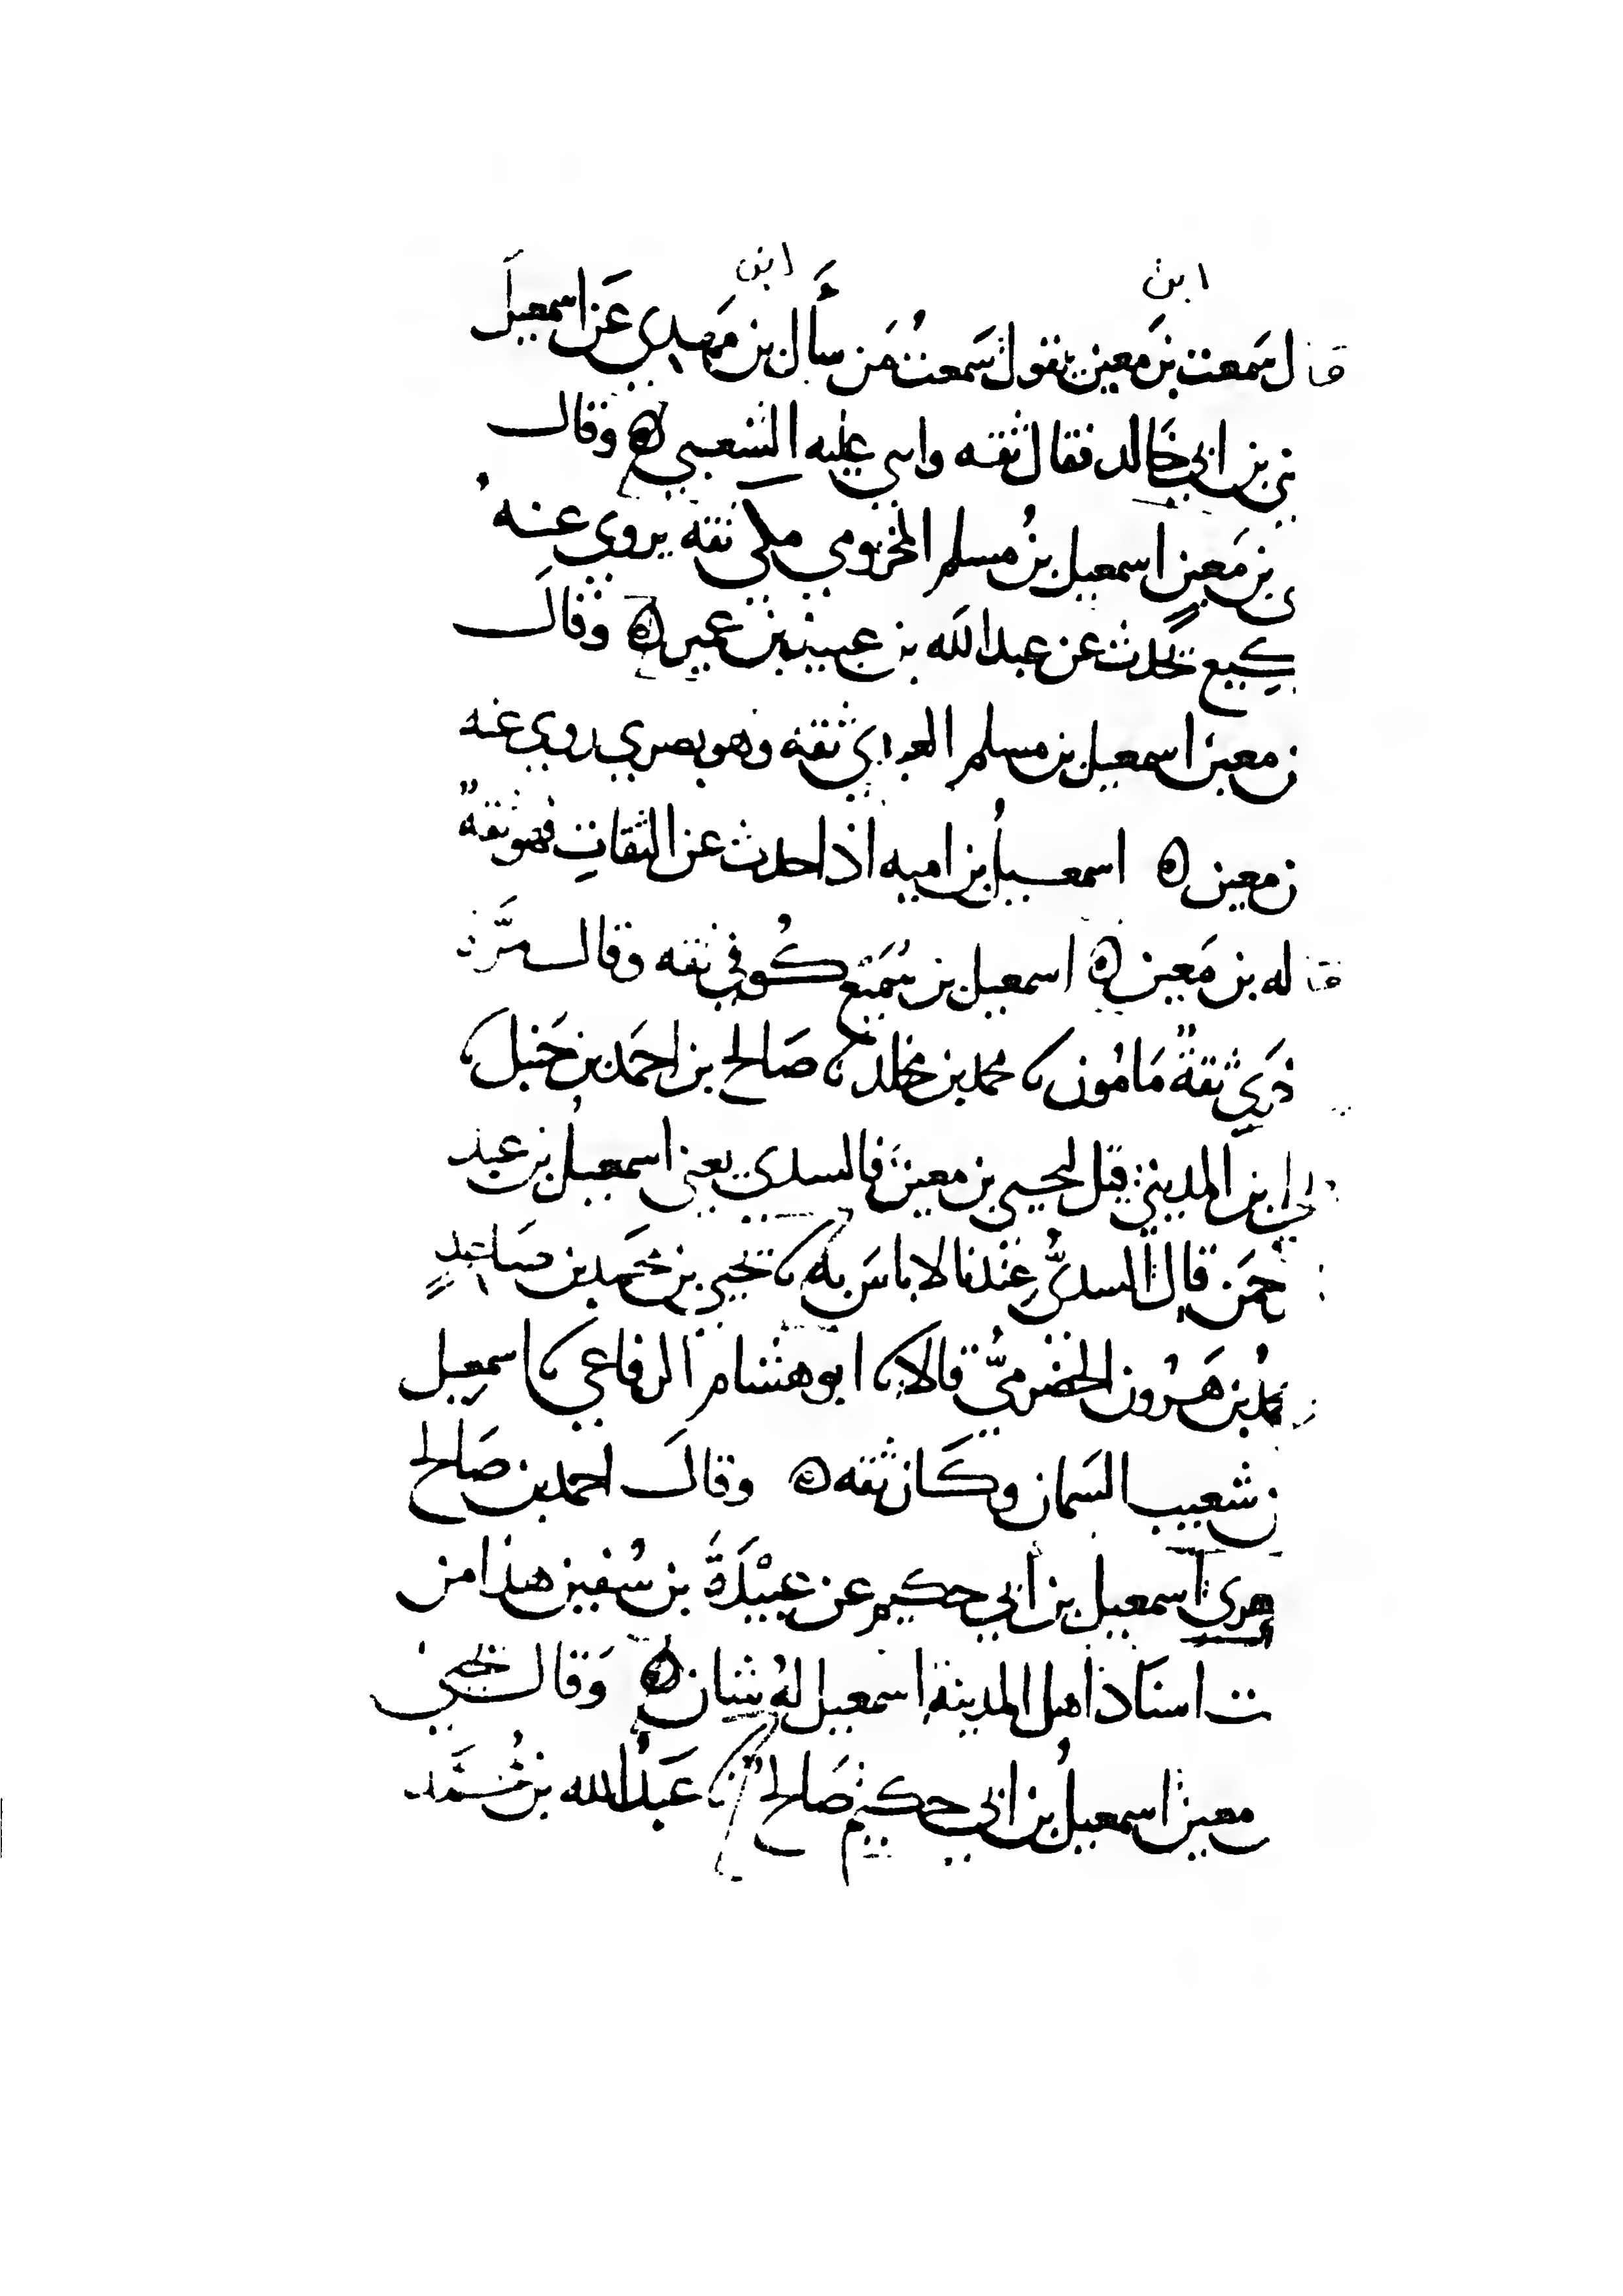 ابن ابن
قال سَمعت بن مَعين يقول سَمعتُ مَن سأَل بن مَهدي عَن اسمعيلَ
بن ابي خَالد فقال ثقه واسي عليه الشعبي ه وقال
بن مَعين اسمعيل بنُ مسلم المخزومي مكي ثقه يروي عنهُ
كيع يحَدث عن عبد الله بن عبيد بن عمير ه وقالَ
ن معين اسمعيل بن مسلم العبدي ثقه وهو بصري روي عنه
ن معين ه اسمعيلُ بن اميه اذا حدث عن الثقاتِ فهو ثقهٌ
قاله بن مَعين ه اسمعيل بن سُمَيع كُوفي ثقه وقال مَرَّة
ثقةٌ مَامُون محمد بن مخلد صَالح بن احمَد بن حَنبل
بن المديني قيل ليحيي بن معين فالسدي يعني اسمعيلُ بن عبد
حمَن قال السديُّ عِندنا لا باسَ به يحيي بن محَمد بن صَاعدٍ
مدُ بن هَرُون الحضرميُّ قالا ابو هشام الرفاعي اسمعِيل
ن شعيب السَمان وكَان ثقه ه وقالَ احمد بن صَالح
اسمعيل بن ابي حكيم عن عَبِيْدَةَ بن سُفين هذا من
ت اسنَاد اهل المدينة اسمعيل لهُ شان ه وَقال يحيي
معين اسمعيلُ بن ابي حكيم صَالح عَبدُ الله بن مُحَمَّد